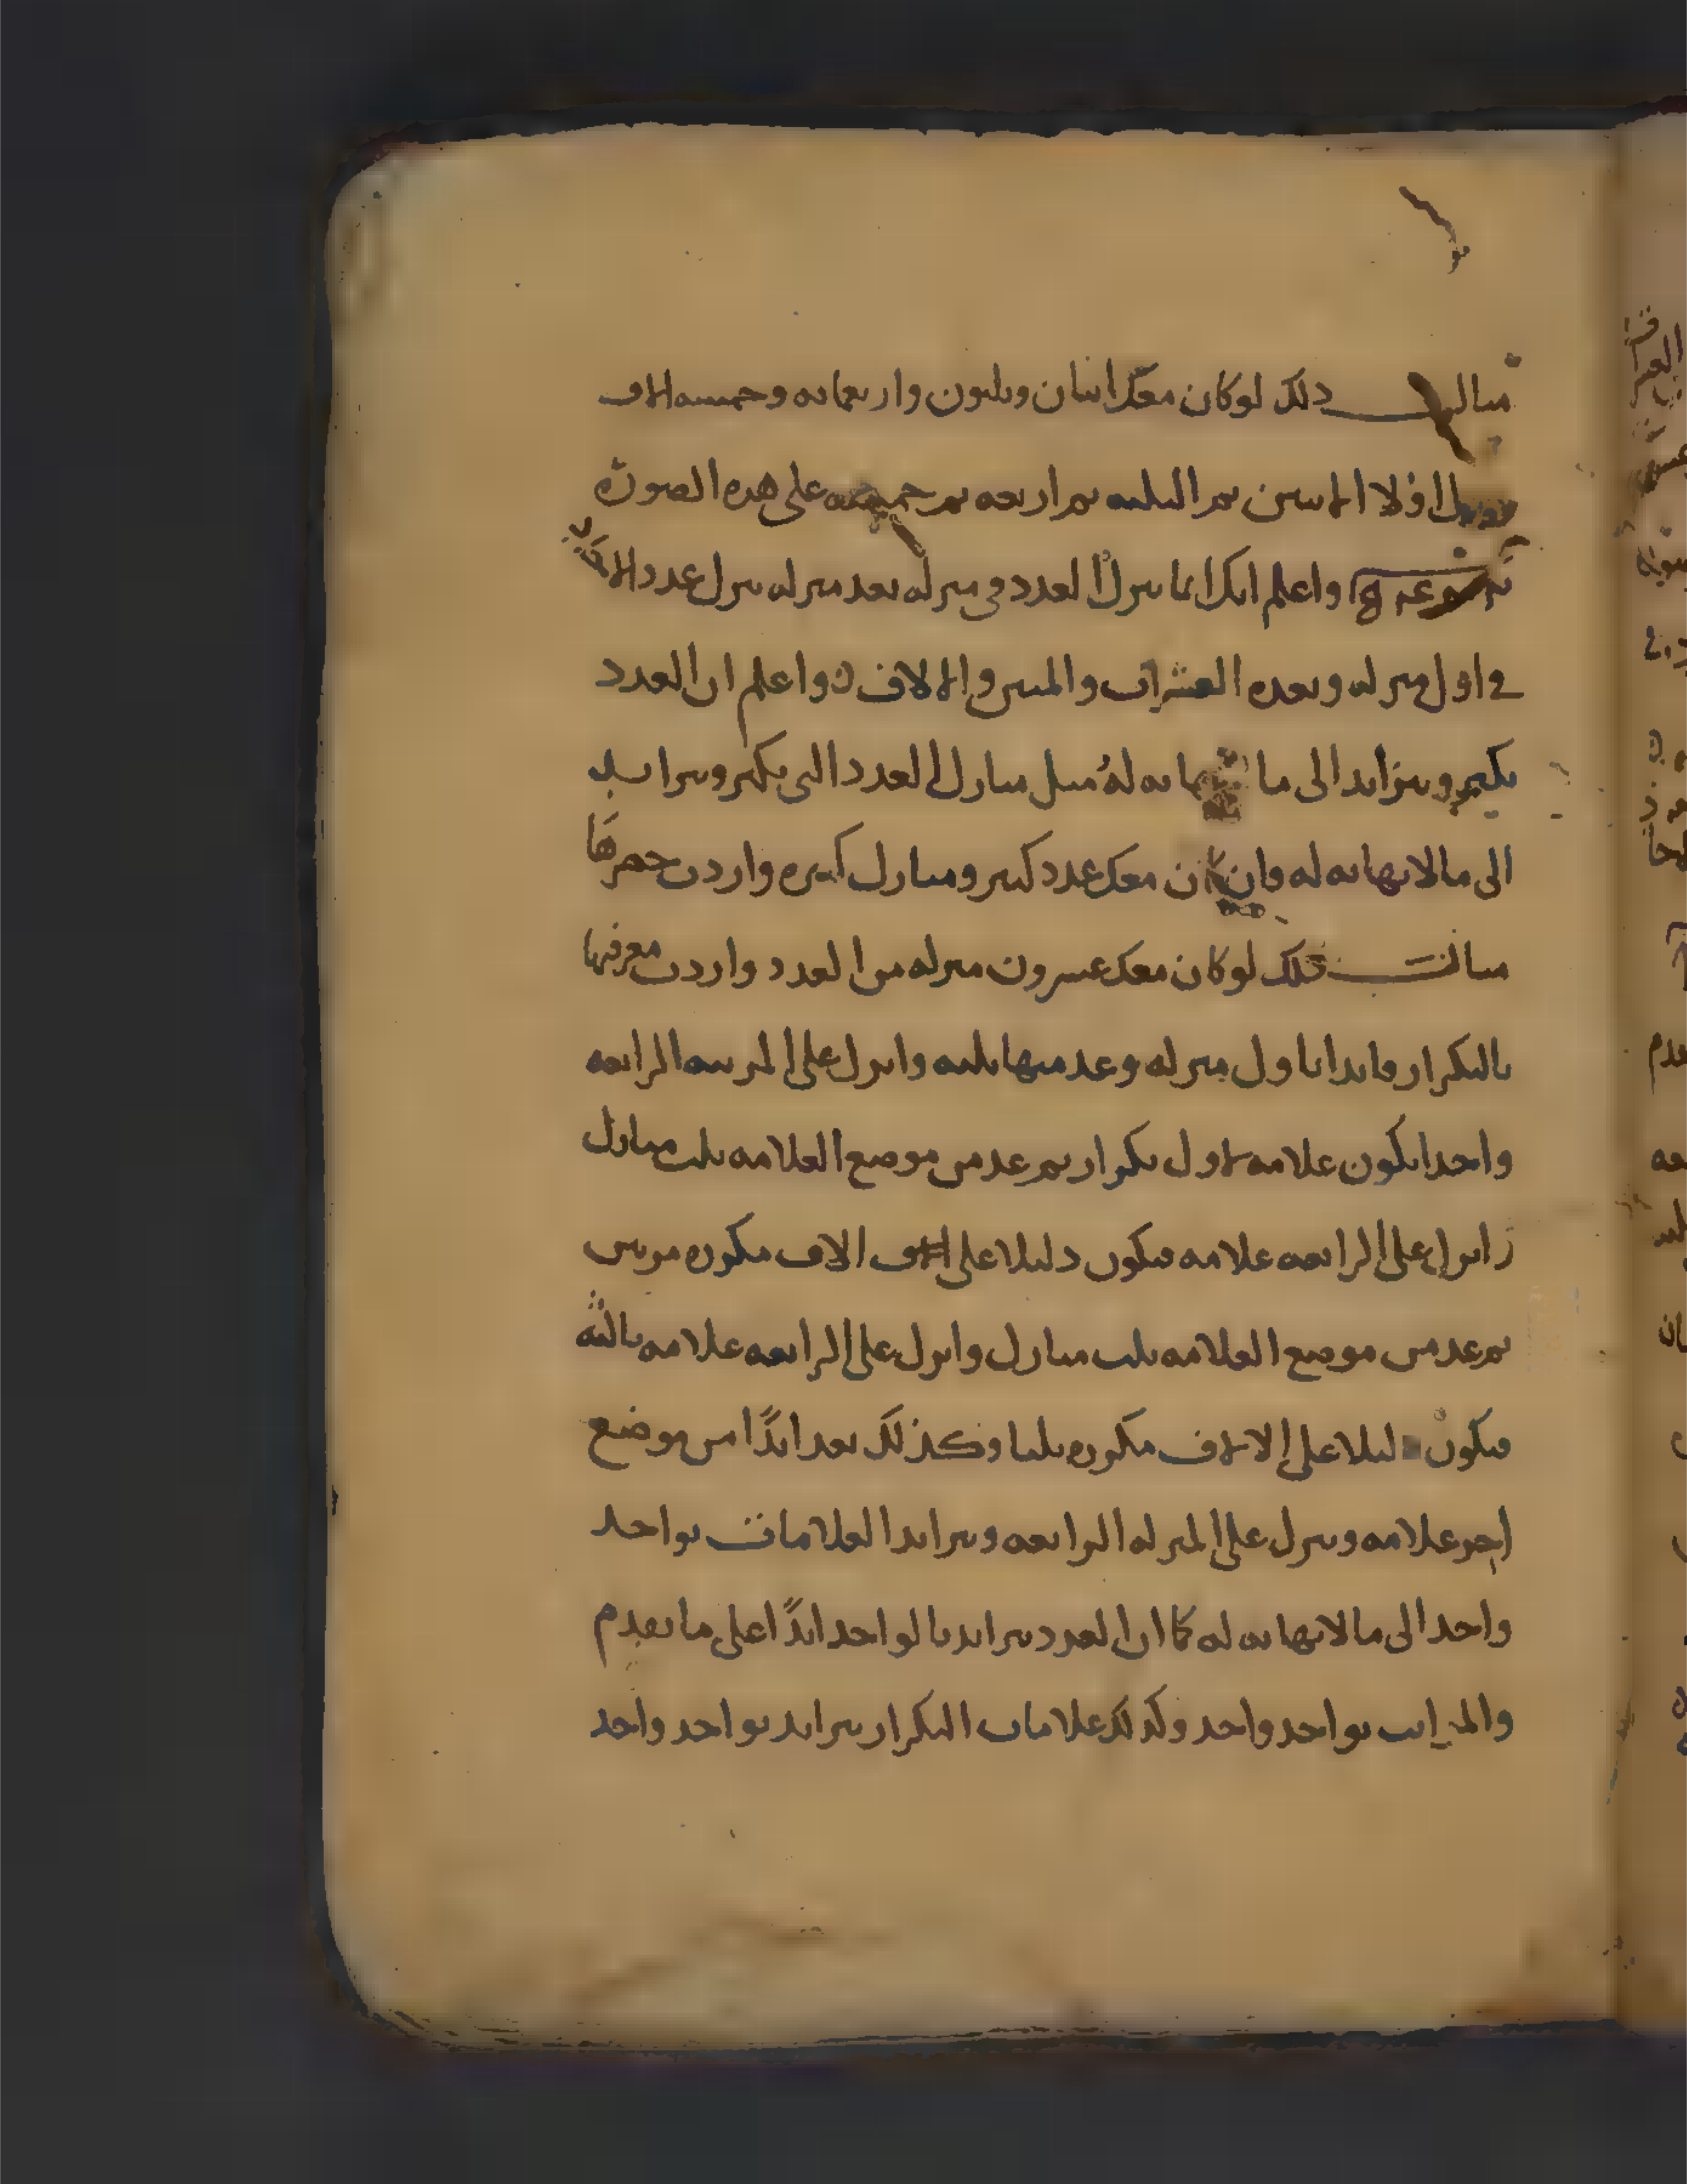 مثال ذلك لو كان معك اثنان وثلثون واربعمائه وخمسه الاف
اولا الاثنين ثم الثلثه ثم اربعه ثم خمسه على هذه الصوره
واعلم انك انما تنزل العدد في منزله بعد منزله تنزل عدد الاحاد
في اول منزله وبعده العشرات والمئين والالاف واعلم ان العدد
يكثر ويتزايد الى ما نهايه له مثل منازل العدد التي تكثر وتتزايد
الى ما لا نهايه له وان كان معك عدد كثير ومنازل كثيره واردت حصرها
مثال ذلك لو كان معك عشرون منزله من العدد واردت معرفتها
بالتكرار فابدا باول منزله وعد منها ثلثه وانزل على المرتبه الرابعه
واحدا يكون علامه لاول تكرار ثم عد من موضع العلامه ثلث منازل
وانزل على الرابعه علامه فيكون دليلا على الاف الالاف مكرره مرتين
ثم عد من موضع العلامه ثلث منازل وانزل على الرابعه علامه ثالثه
فيكون دليلا على الالاف مكرره ثلثا وكذلك بعد ابدًا من موضع
اخر علامه وتنزل على المنزله الرابعه وتتزايد العلامات بواحد
واحد الى ما لا نهايه له كما ان العدد يتزايد بالواحد ابدًا على ما تقدم
والمراتب بواحد واحد وكذلك علامات التكرار تتزايد بواحد واحد